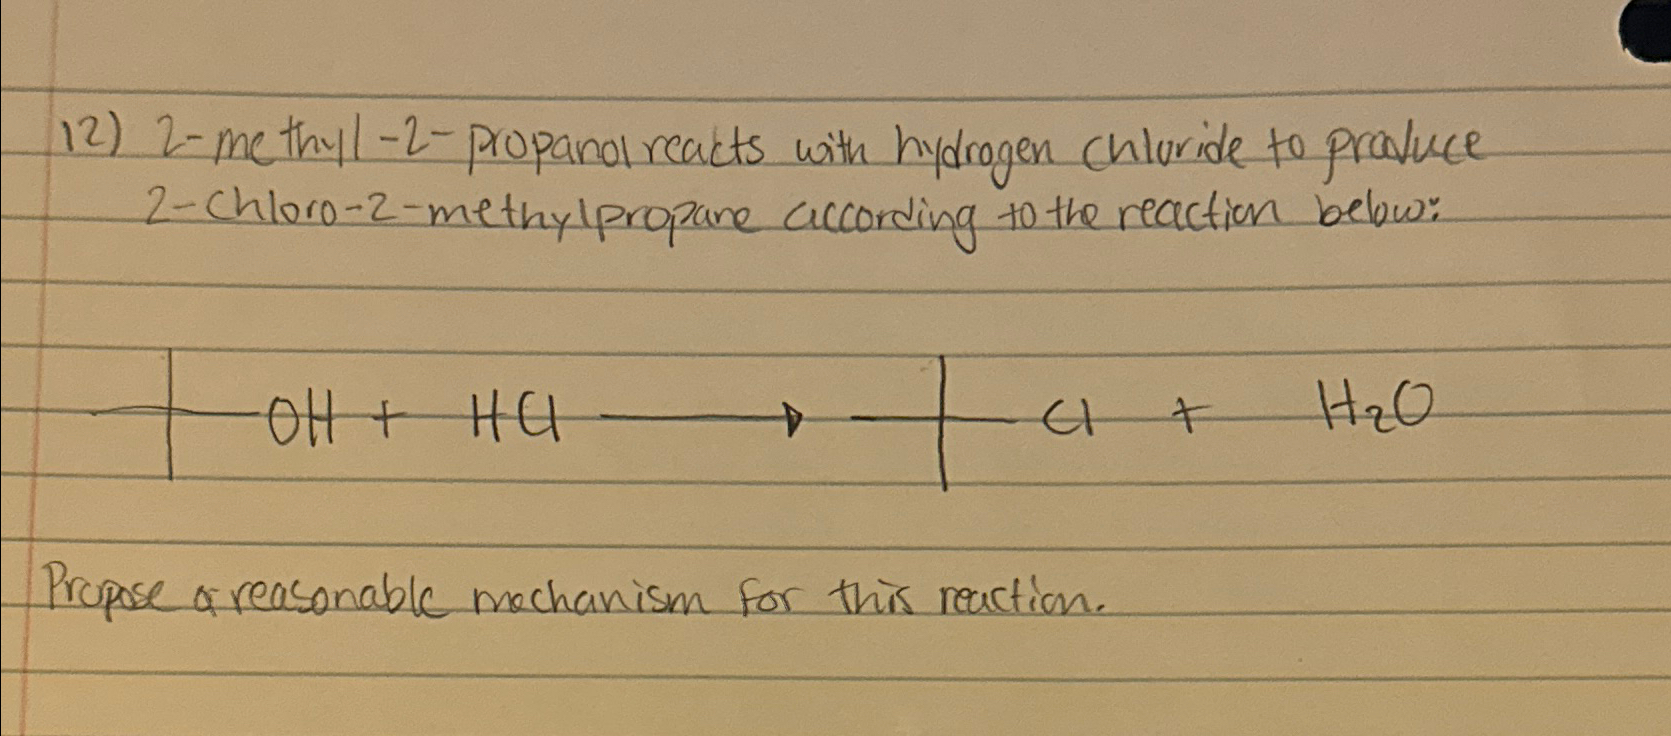 12) 2-methyl-2-propanol reacts with hydrogen chloride to produce
2-chloro-2-methylpropane according to the reaction below:
OH + HCl → Cl + H₂O
Propose a reasonable mechanism for this reaction.